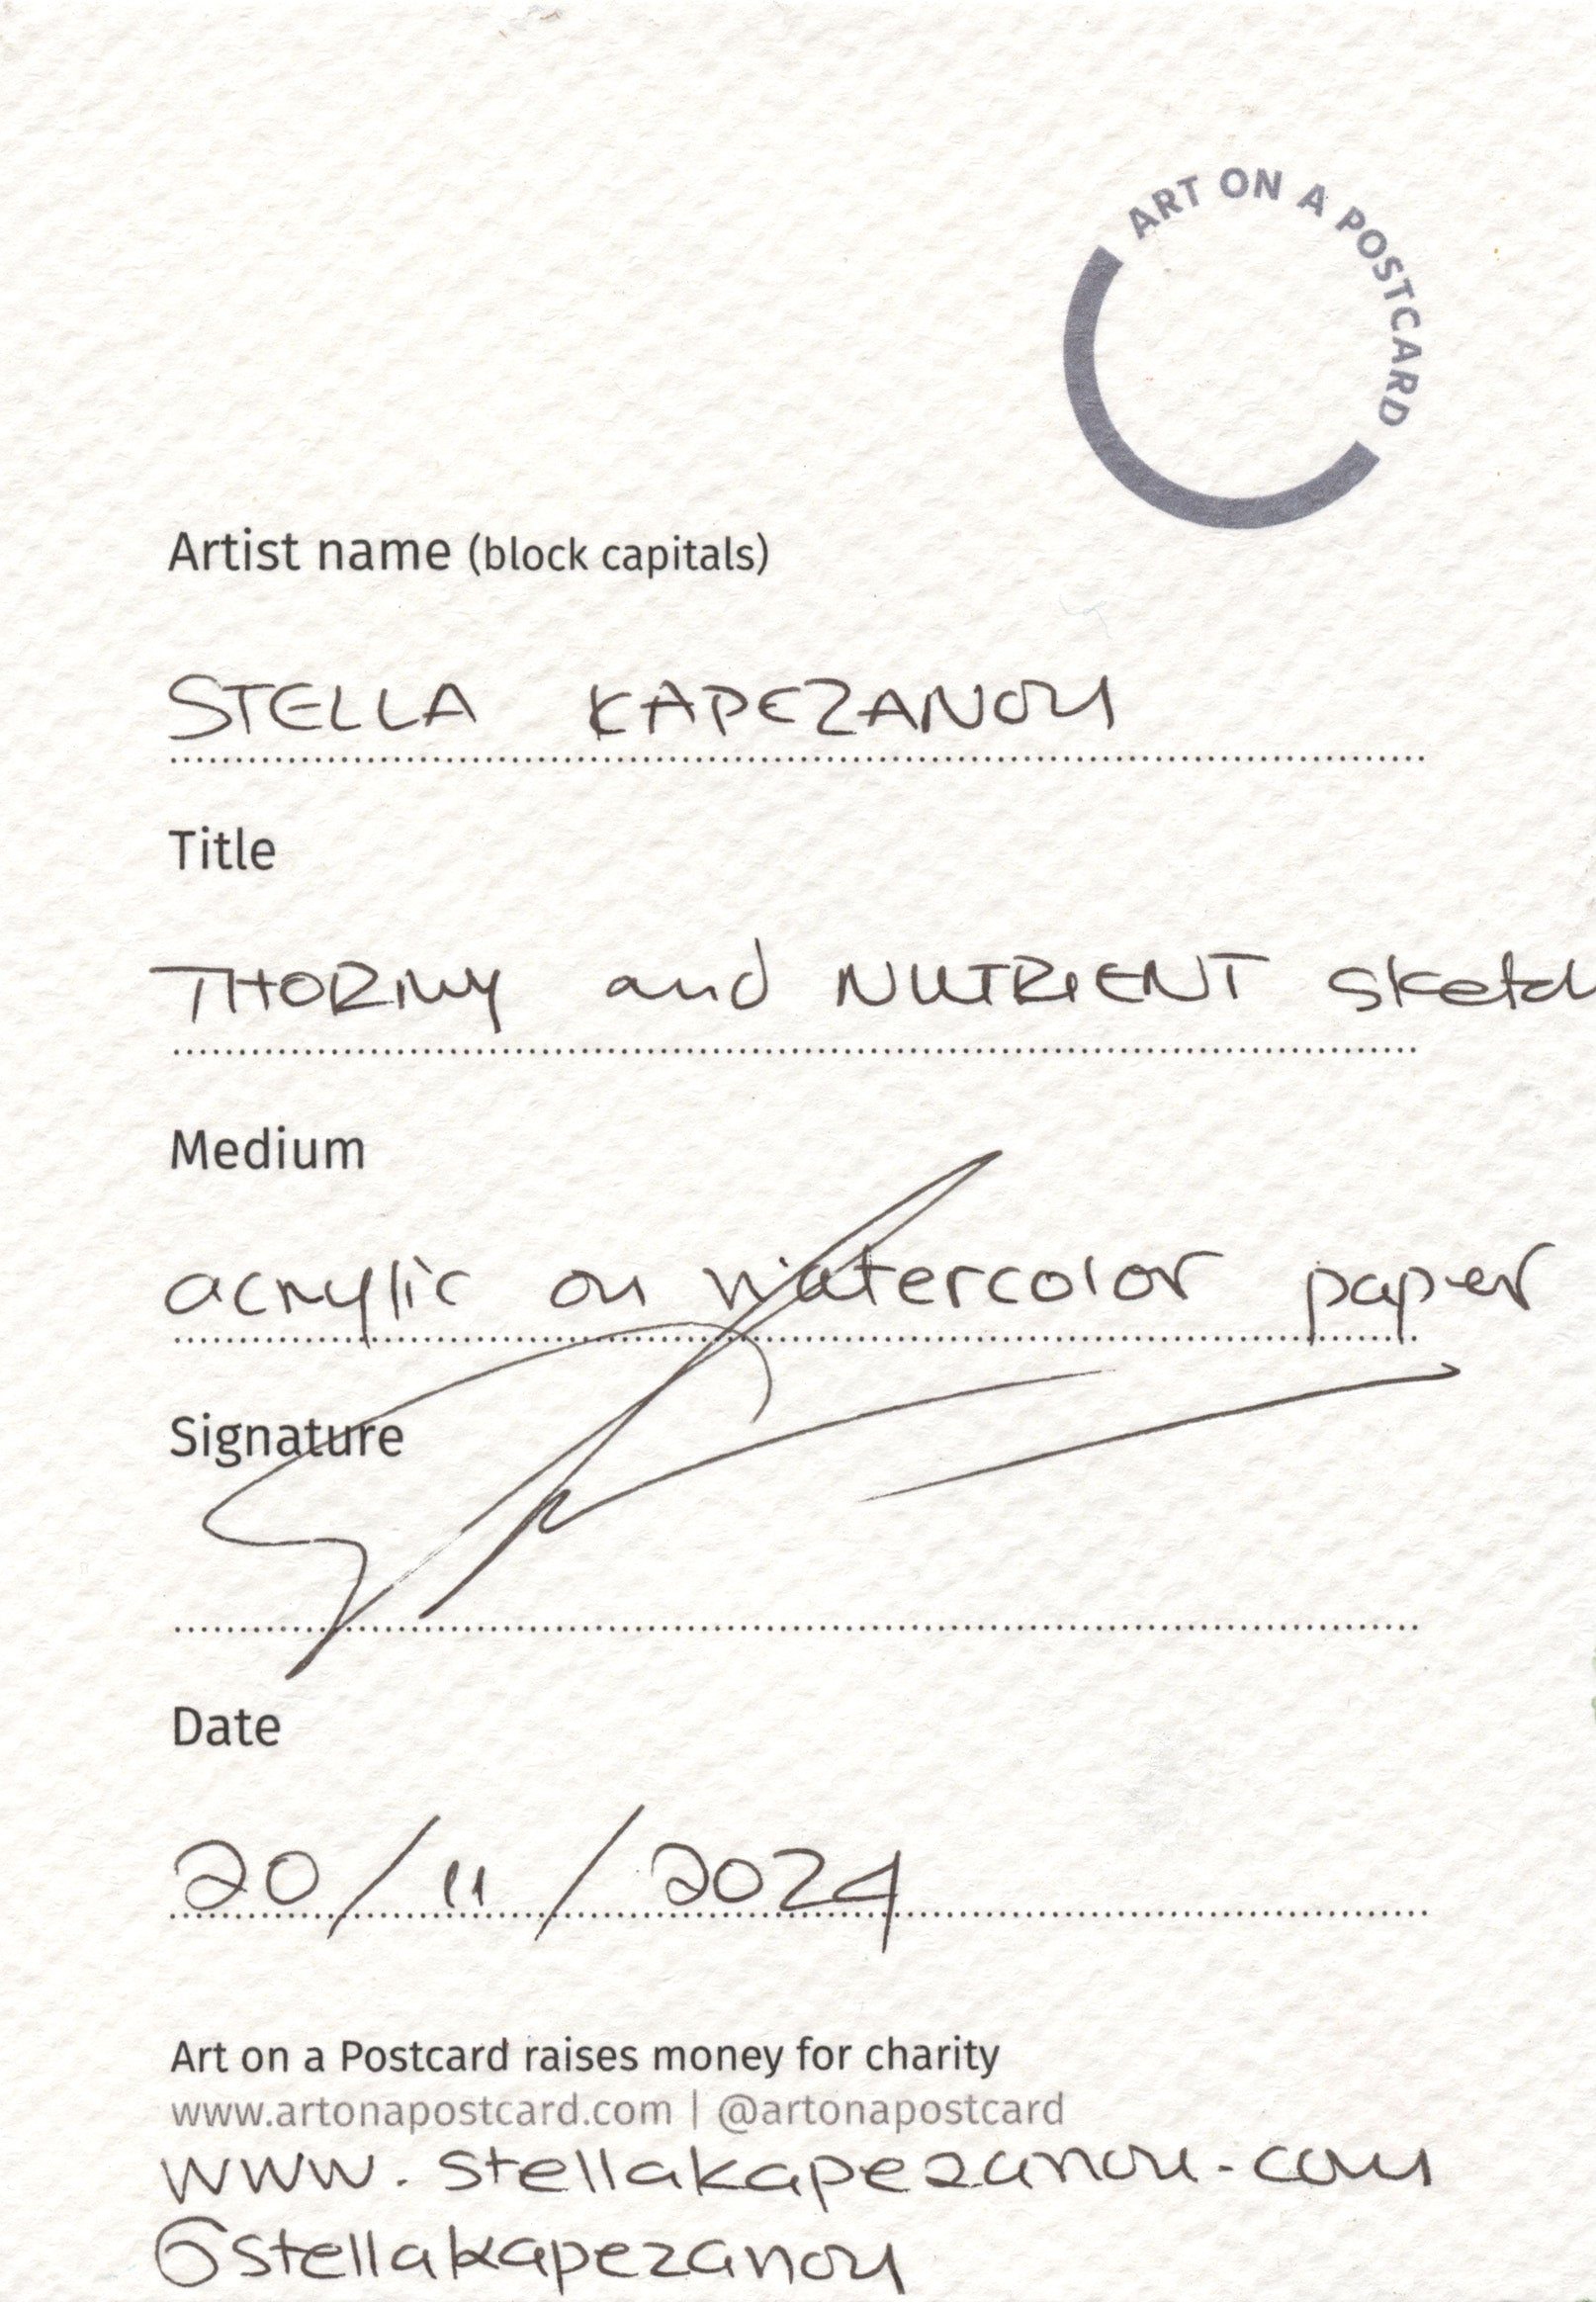 ART ON A POSTCARD
Artist name (block capitals)
STELLA KAPEZANOU
Title
THORNY and NUTRIENT sketch
Medium
acrylic on watercolor paper
Signature
Date
20/11/2024
Art on a Postcard raises money for charity
www.artonapostcard.com | @artonapostcard
www.stellakapezanou.com
@stellakapezanou